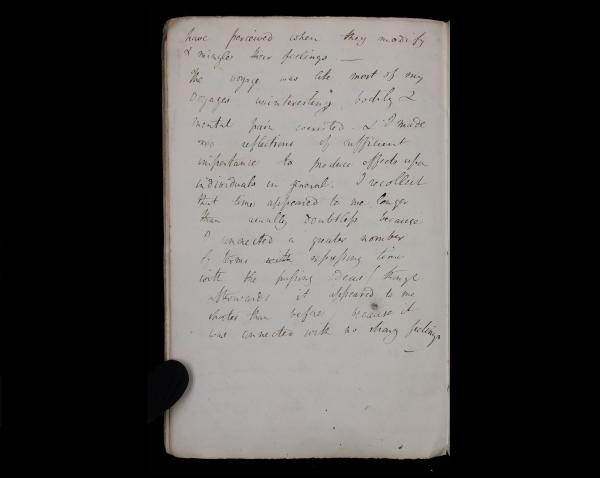 have perceived when they modify
& mingle their feelings —
The voyage was like most of my
voyages uninteresting, bodily &
mental pain coexisted & I made
no reflections of sufficient
importance to produce effects upon
individuals in general. I recollect
that time appeared to me longer
than usually doubtless because
I connected a greater number
of terms with expressing time
with the passing ideas/ though
afterwards it appeared to me
shorter than before because it
was connected with no strong feelings
—